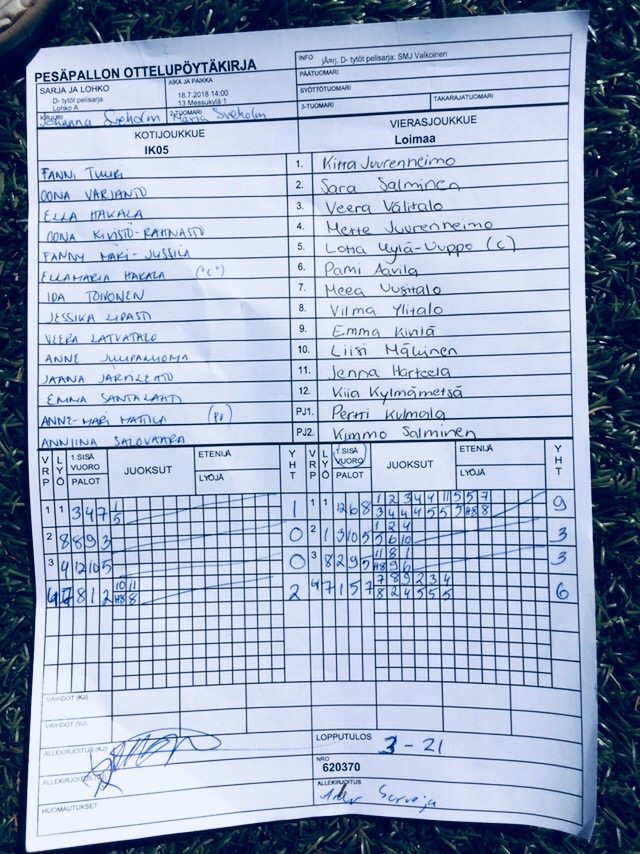 PESÄPALLON OTTELUPÖYTÄKIRJA
INFO jÄnrj. D- tytöt pelisarja: SMJ Valkoinen
PÄÄTUOMARI
SARJA JA LOHKO
D- tytöt pelisarja
Lohko A
AIKA JA PAIKKA
18.7.2018 14:00
13 Messukylä 1
SYÖTTÖTUOMARI
KIRJURI
2-TUOMARI
3-TUOMARI
TAKARAJATUOMARI
Johanna Sveholm
Maria Sveholm
KOTIJOUKKUE
IK05
VIERASJOUKKUE
Loimaa
FANNI TUURI 1.
OONA VARJANTO 2. Sara Salminen
ELLA HAKALA 3. Veera Välitalo
OONA KIVISTÖ-RAHNASTO 4. Mette Juurenheimo
FANNY MÄKI-JUSSILA 5. Lotta (C)
ELLAMARIA HAKALA ("C") 6. Pami Aavila
IDA TOIVONEN 7. Meea Uusitalo
JESSIKA LIPASTI 8. Vilma Ylitalo
VEERA LATVATALO 9. Emma Kivilä
ANNE 10. Liisi Mäkinen
JAANA JÄRNLEHTO 11. Jenna Harteela
EMMA SANTALAHTI 12. Kiia Kylmämetsä
ANNE-MARI MATTILA (PJ) PJ1. Pertti Kulmala
ANNIINA SALOVAARA PJ2. Kimmo Salminen
VRP LYÖ 1.SISÄ VUORO PALOT JUOKSUT ETENIJÄ LYÖJÄ YHT
VRP LYÖ 1.SISÄ VUORO PALOT JUOKSUT ETENIJÄ LYÖJÄ YHT
1 1 3 4 7 1 1 1 1 12 6 8 1 2 3 4 4 11 5 5 7 9
5 3 4 4 4 5 5 5 H8 8
2 8 8 9 3 0 2 1 3 10 5 1 2 4 3
5 6 10
3 4 12 10 5 0 3 8 2 9 5 11 8 1 3
H8 9 6
4 7 8 1 2 10 11 2 4 7 1 5 7 7 8 9 2 3 4 6
H8 8 8 2 4 5 5 5
VAIHDOT (KJ)
VAIHDOT (VJ)
ALLEKIRJOITUS (KJ)
LOPPUTULOS 3 - 21
NRO
620370
ALLEKIRJOITUS
ALLEKIRJOITUS
HUOMAUTUKSET